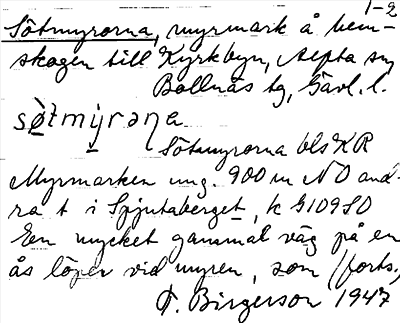 1-2
Sötmyrorna, myrmark å hem-
skogen till Kyrkbyn, Alfta sn
Bollnäs tg, Gävl. l.
sø̀tmỳrəɳa
Sötmyrorna bls KR
Myrmarken ung. 900 m NO and-
ra t i Spjutaberget, k G109SO
En mycket gammal väg på en
ås löper vid myren, som (forts.)
F. Birgerson 1947